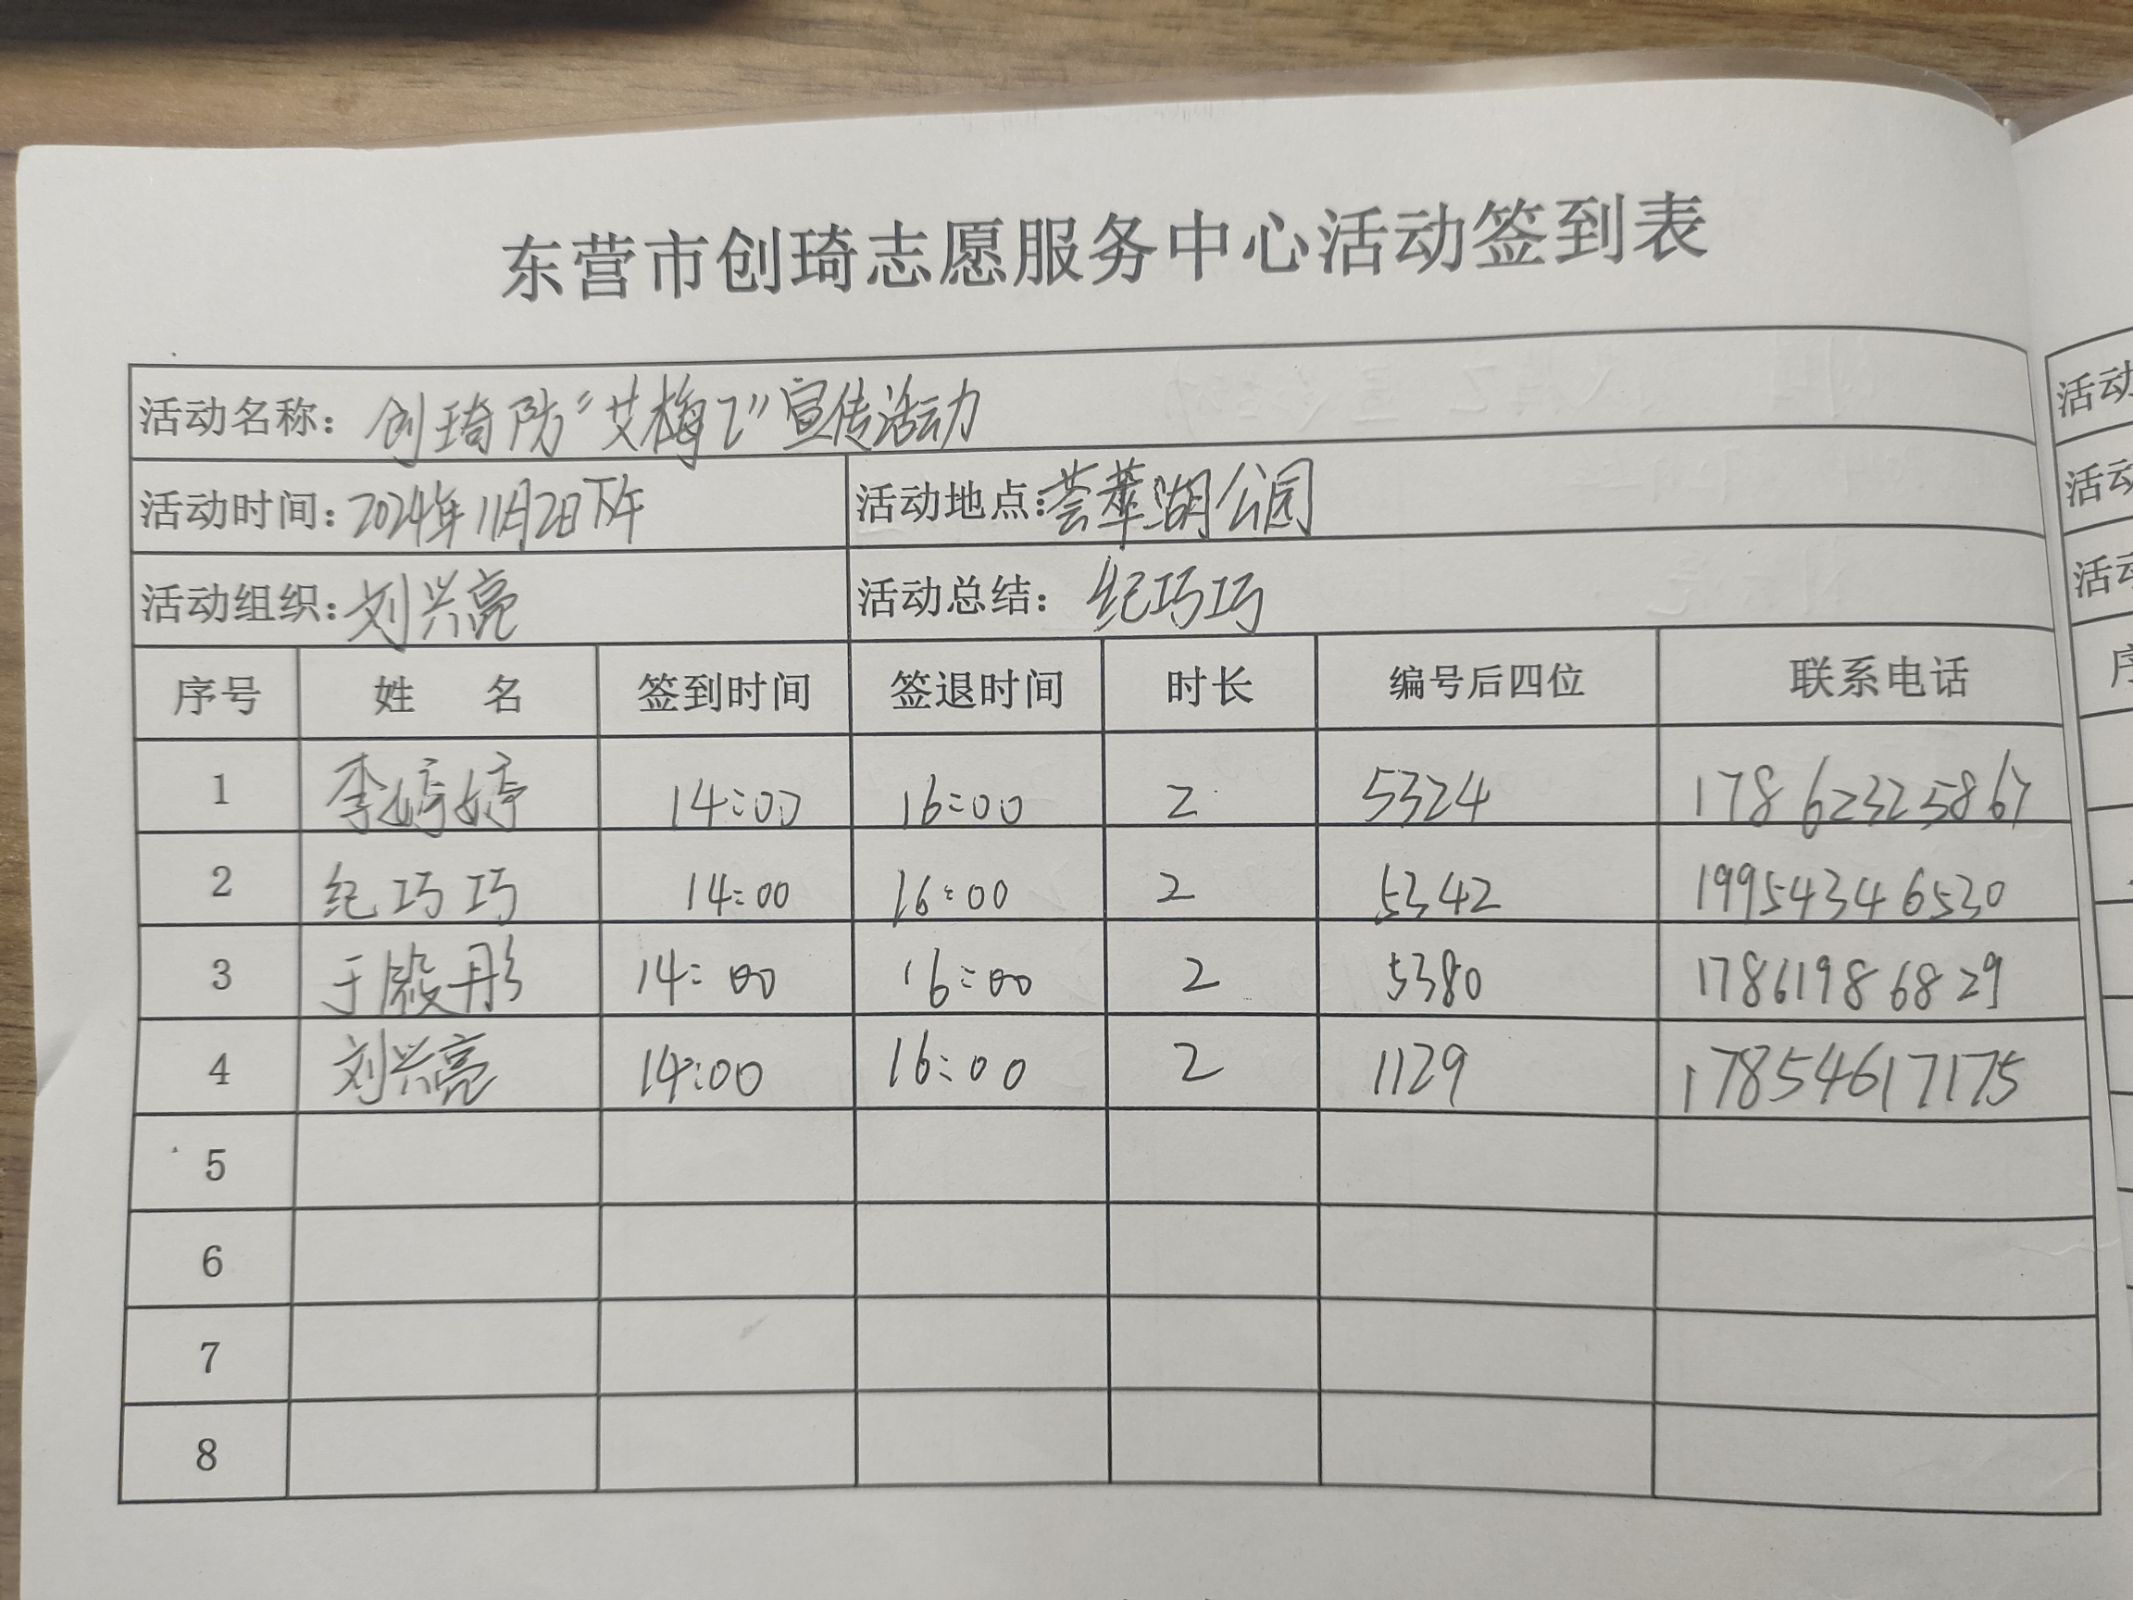 东营市创琦志愿服务中心活动签到表
活动名称：创琦防“艾梅乙”宣传活动
活动时间：2024年11月2日下午 活动地点：荟萃湖公园
活动组织：刘兴亮 活动总结：纪巧巧
序号 姓 名 签到时间 签退时间 时长 编号后四位 联系电话
1 李婷婷 14:00 16:00 2 5324 17862325867
2 纪巧巧 14:00 16:00 2 5342 19954346530
3 于殿彤 14:00 16:00 2 5380 17861986829
4 刘兴亮 14:00 16:00 2 1129 17854617175
5
6
7
8
活动
活动
活动
序